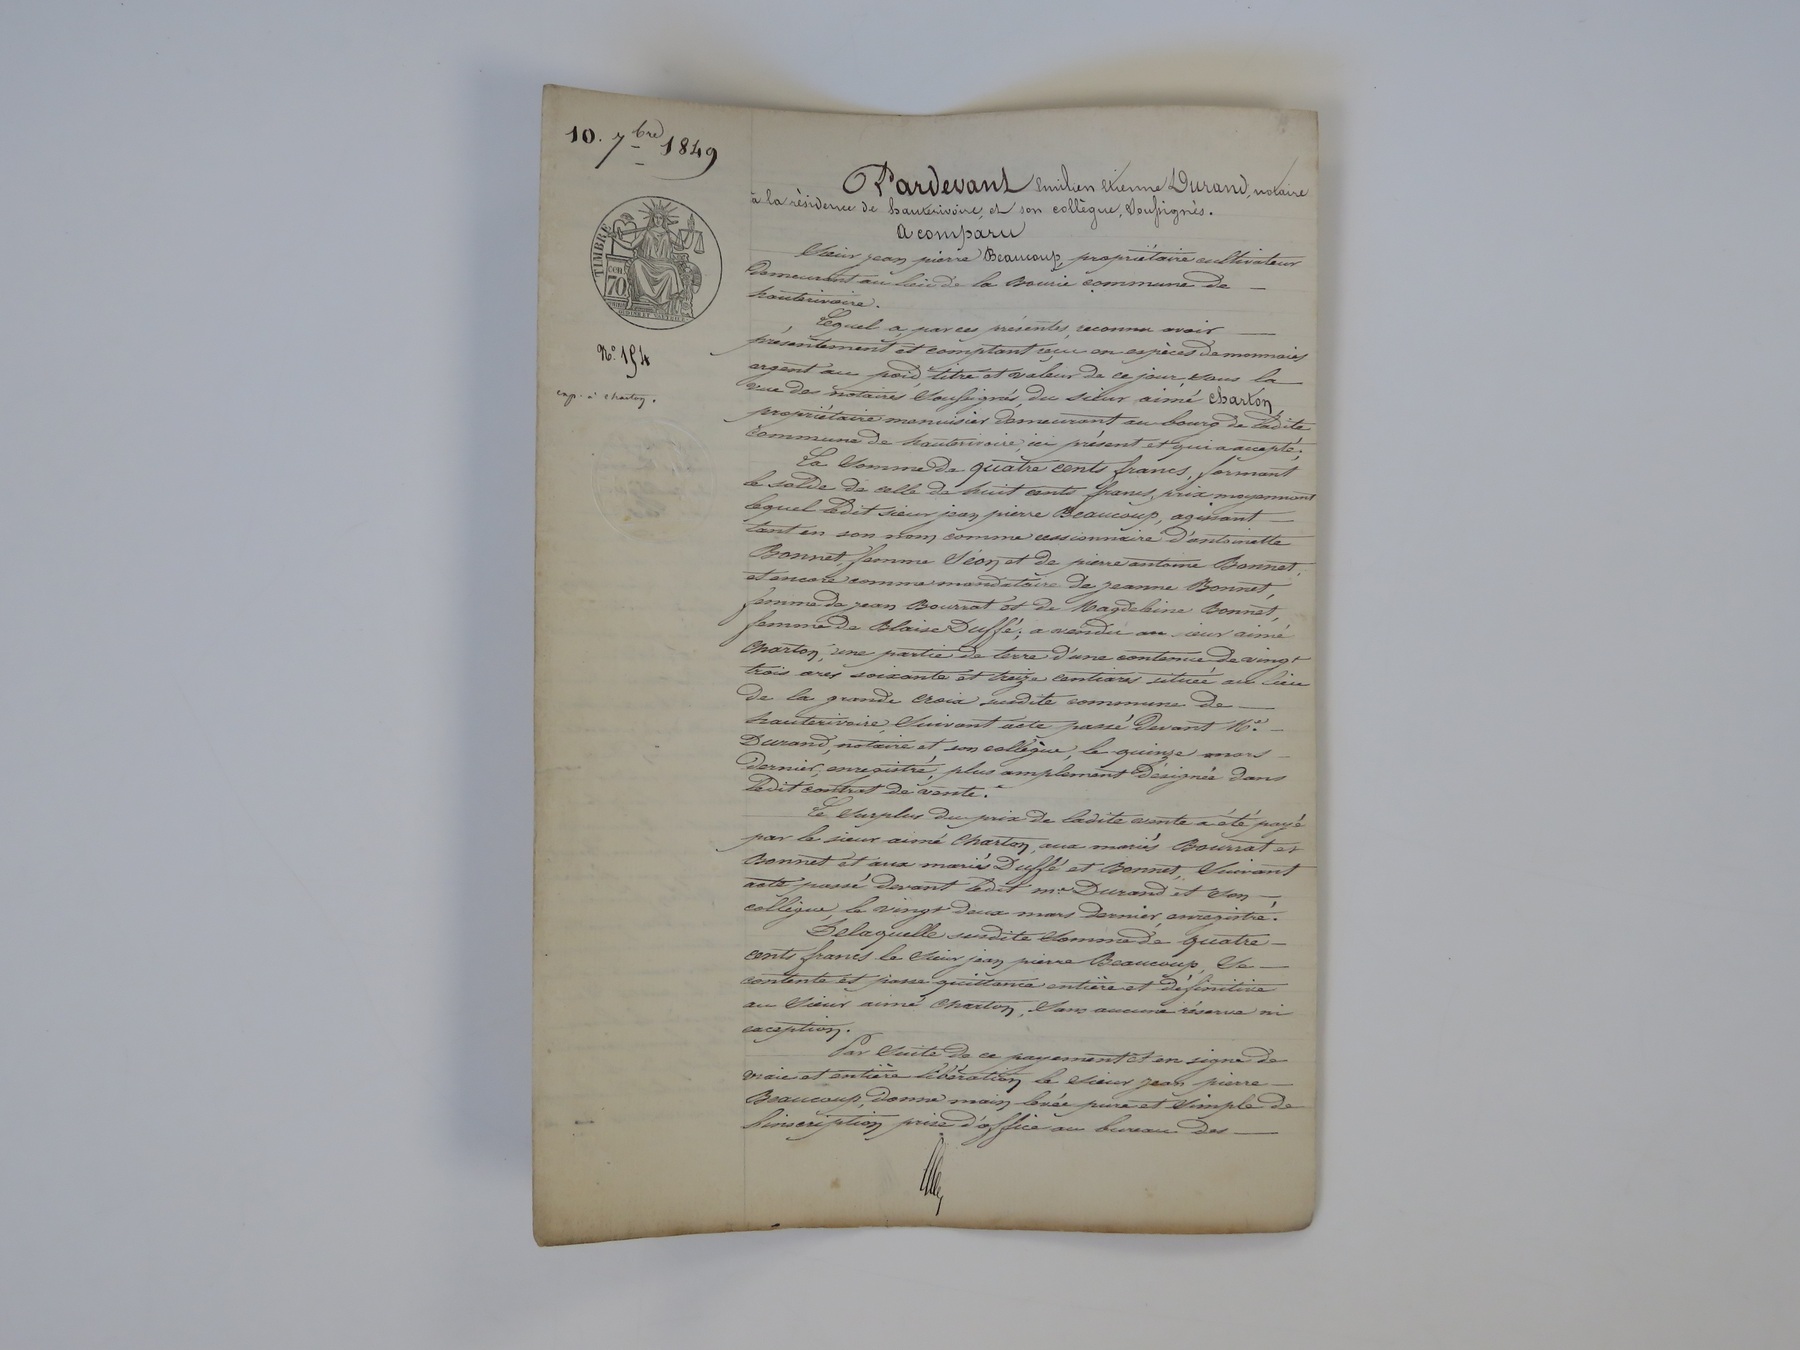 10. 7bre 1849
TIMBRE
CEN
70
N.° 154
exp. à charton.
Pardevant Emilien etienne Durand, notaire
à la résidence de hauterivoire, et son collègue, Soussignés.
A comparu
Sieur jean pierre Beaucoup, propriétaire cultivateur
demeurant au lieu de la Bourie commune de
hauterivoire.
Lequel a, par ces présentes, reconnu avoir
présentement et comptant reçu en espèces de monnaies
argent au poid titre et valeur de ce jour, sous la
vue des notaires Soussignés, du sieur aimé Charton
propriétaire menuisier demeurant au bourg de ladite
commune de hauterivoire, ici présent et qui a accepté;
La Somme de quatre cents francs, formant
le solde de celle de huit cents francs, prix moyennant
lequel ledit sieur jean pierre Beaucoup, agissant
tant en son nom comme cessionnaire d'antoinette
Bonnet, femme Séon et de pierre antoine Bonnet,
et encore comme mandataire de jeanne Bonnet,
femme de jean Bourrat et de Magdeleine Bonnet,
femme de Blaise Duffé; a vendu au sieur aimé
Charton, une partie de terre d'une contenue de vingt
trois ares soixante et treize centiares située au lieu
de la grande croix susdite commune de
hauterivoire, Suivant acte passé devant M.e
Durand, notaire et son collègue, le quinze mars
dernier, enregistré, plus amplement désignée dans
ledit contrat de vente.
Le Surplus du prix de ladite vente a été payé
par le sieur aimé Charton, aux mariés Bourrat et
Bonnet et aux mariés Duffé et Bonnet, Suivant
acte passé devant ledit m.e Durand et Son
collègue, le vingt deux mars dernier, enregistré.
Delaquelle susdite Somme de quatre
cents francs le Sieur jean pierre Beaucoup, Se
contente et passe quittance entière et définitive
au Sieur aimé Charton, Sans aucune réserve ni
exception.
Par Suite de ce payement et en signe de
vraie et entière libération le Sieur jean pierre
Beaucoup, donne main levée pure et Simple de
l'inscription prise d'office au bureau des